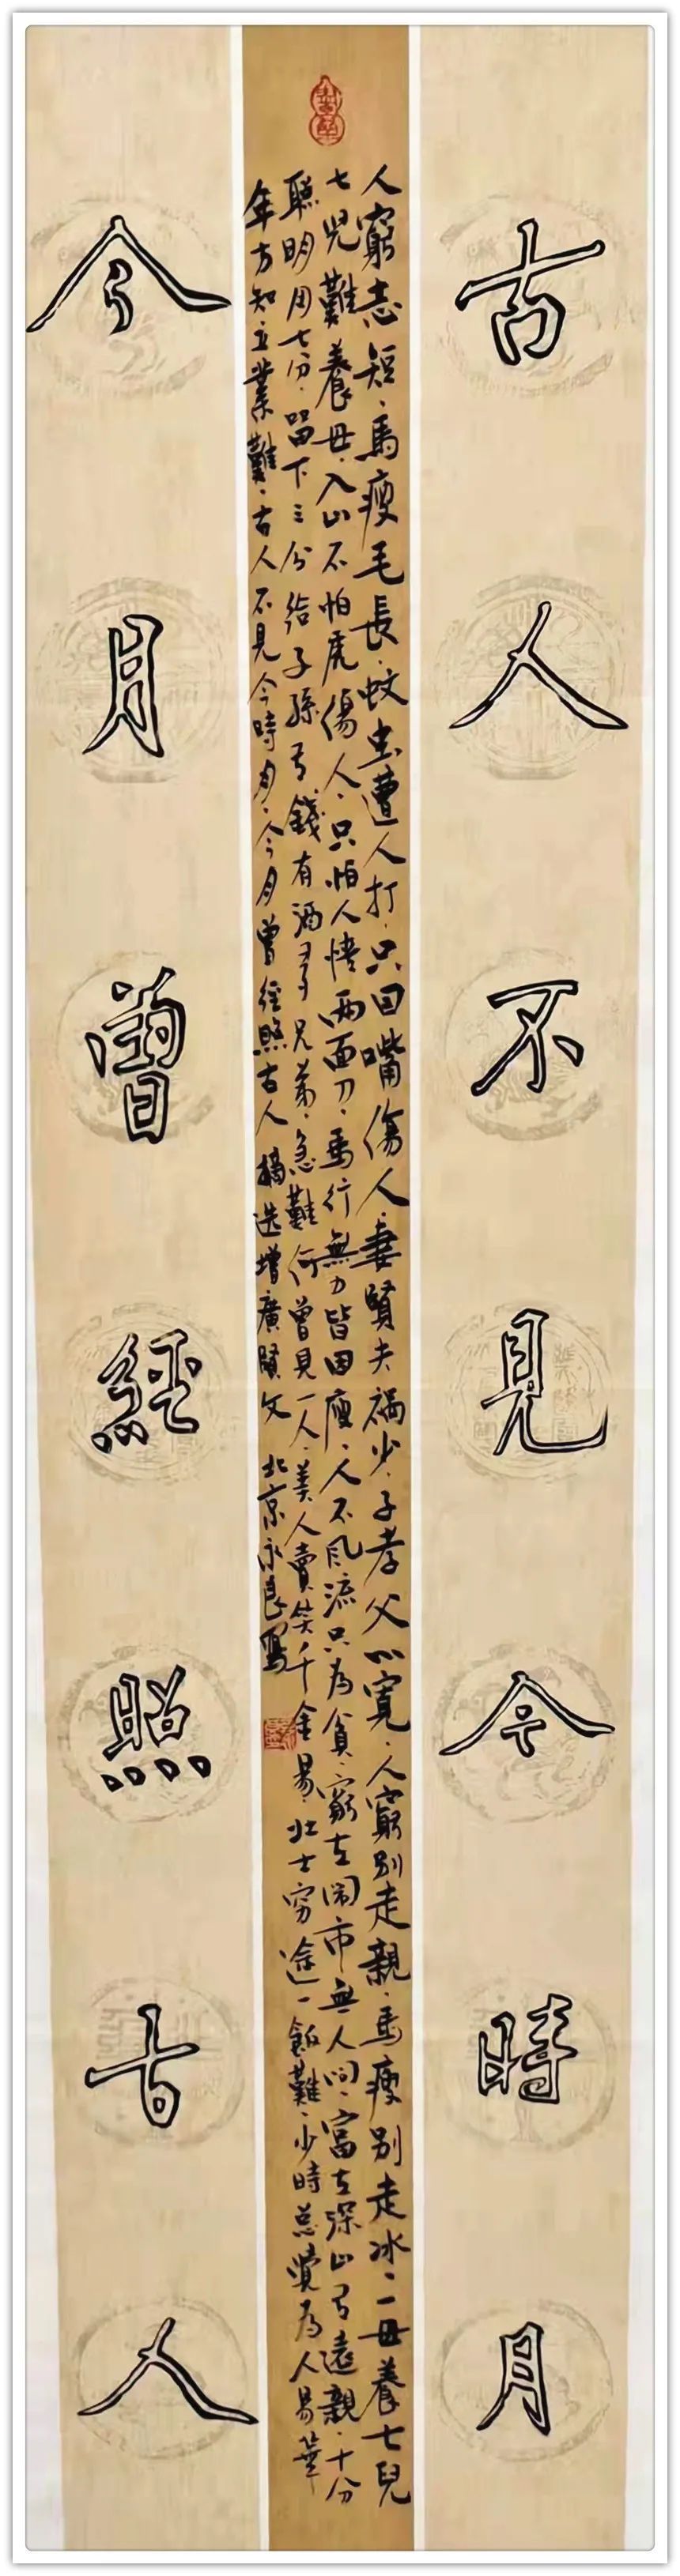 古人不見今時月
人窮志短馬瘦毛長蚊虫遭人打只因嘴傷人妻賢夫禍少子孝父心寬人窮别走親馬瘦别走冰一母養七兒
七児難養母入山不怕虎傷人只怕人情两面刀馬行無力皆因瘦人不風流只為貧窮在闹市無人問富在深山有遠親十分
聪明用七分留下三分给子孫有錢有酒多兄弟急難何曾見一人美人賣笑千金易壮士穷途一飯難少時总覺為人易華
年方知立業難古人不見今時月今月曾經照古人 摘选增廣賢文 北京永良寫
今月曾經照古人